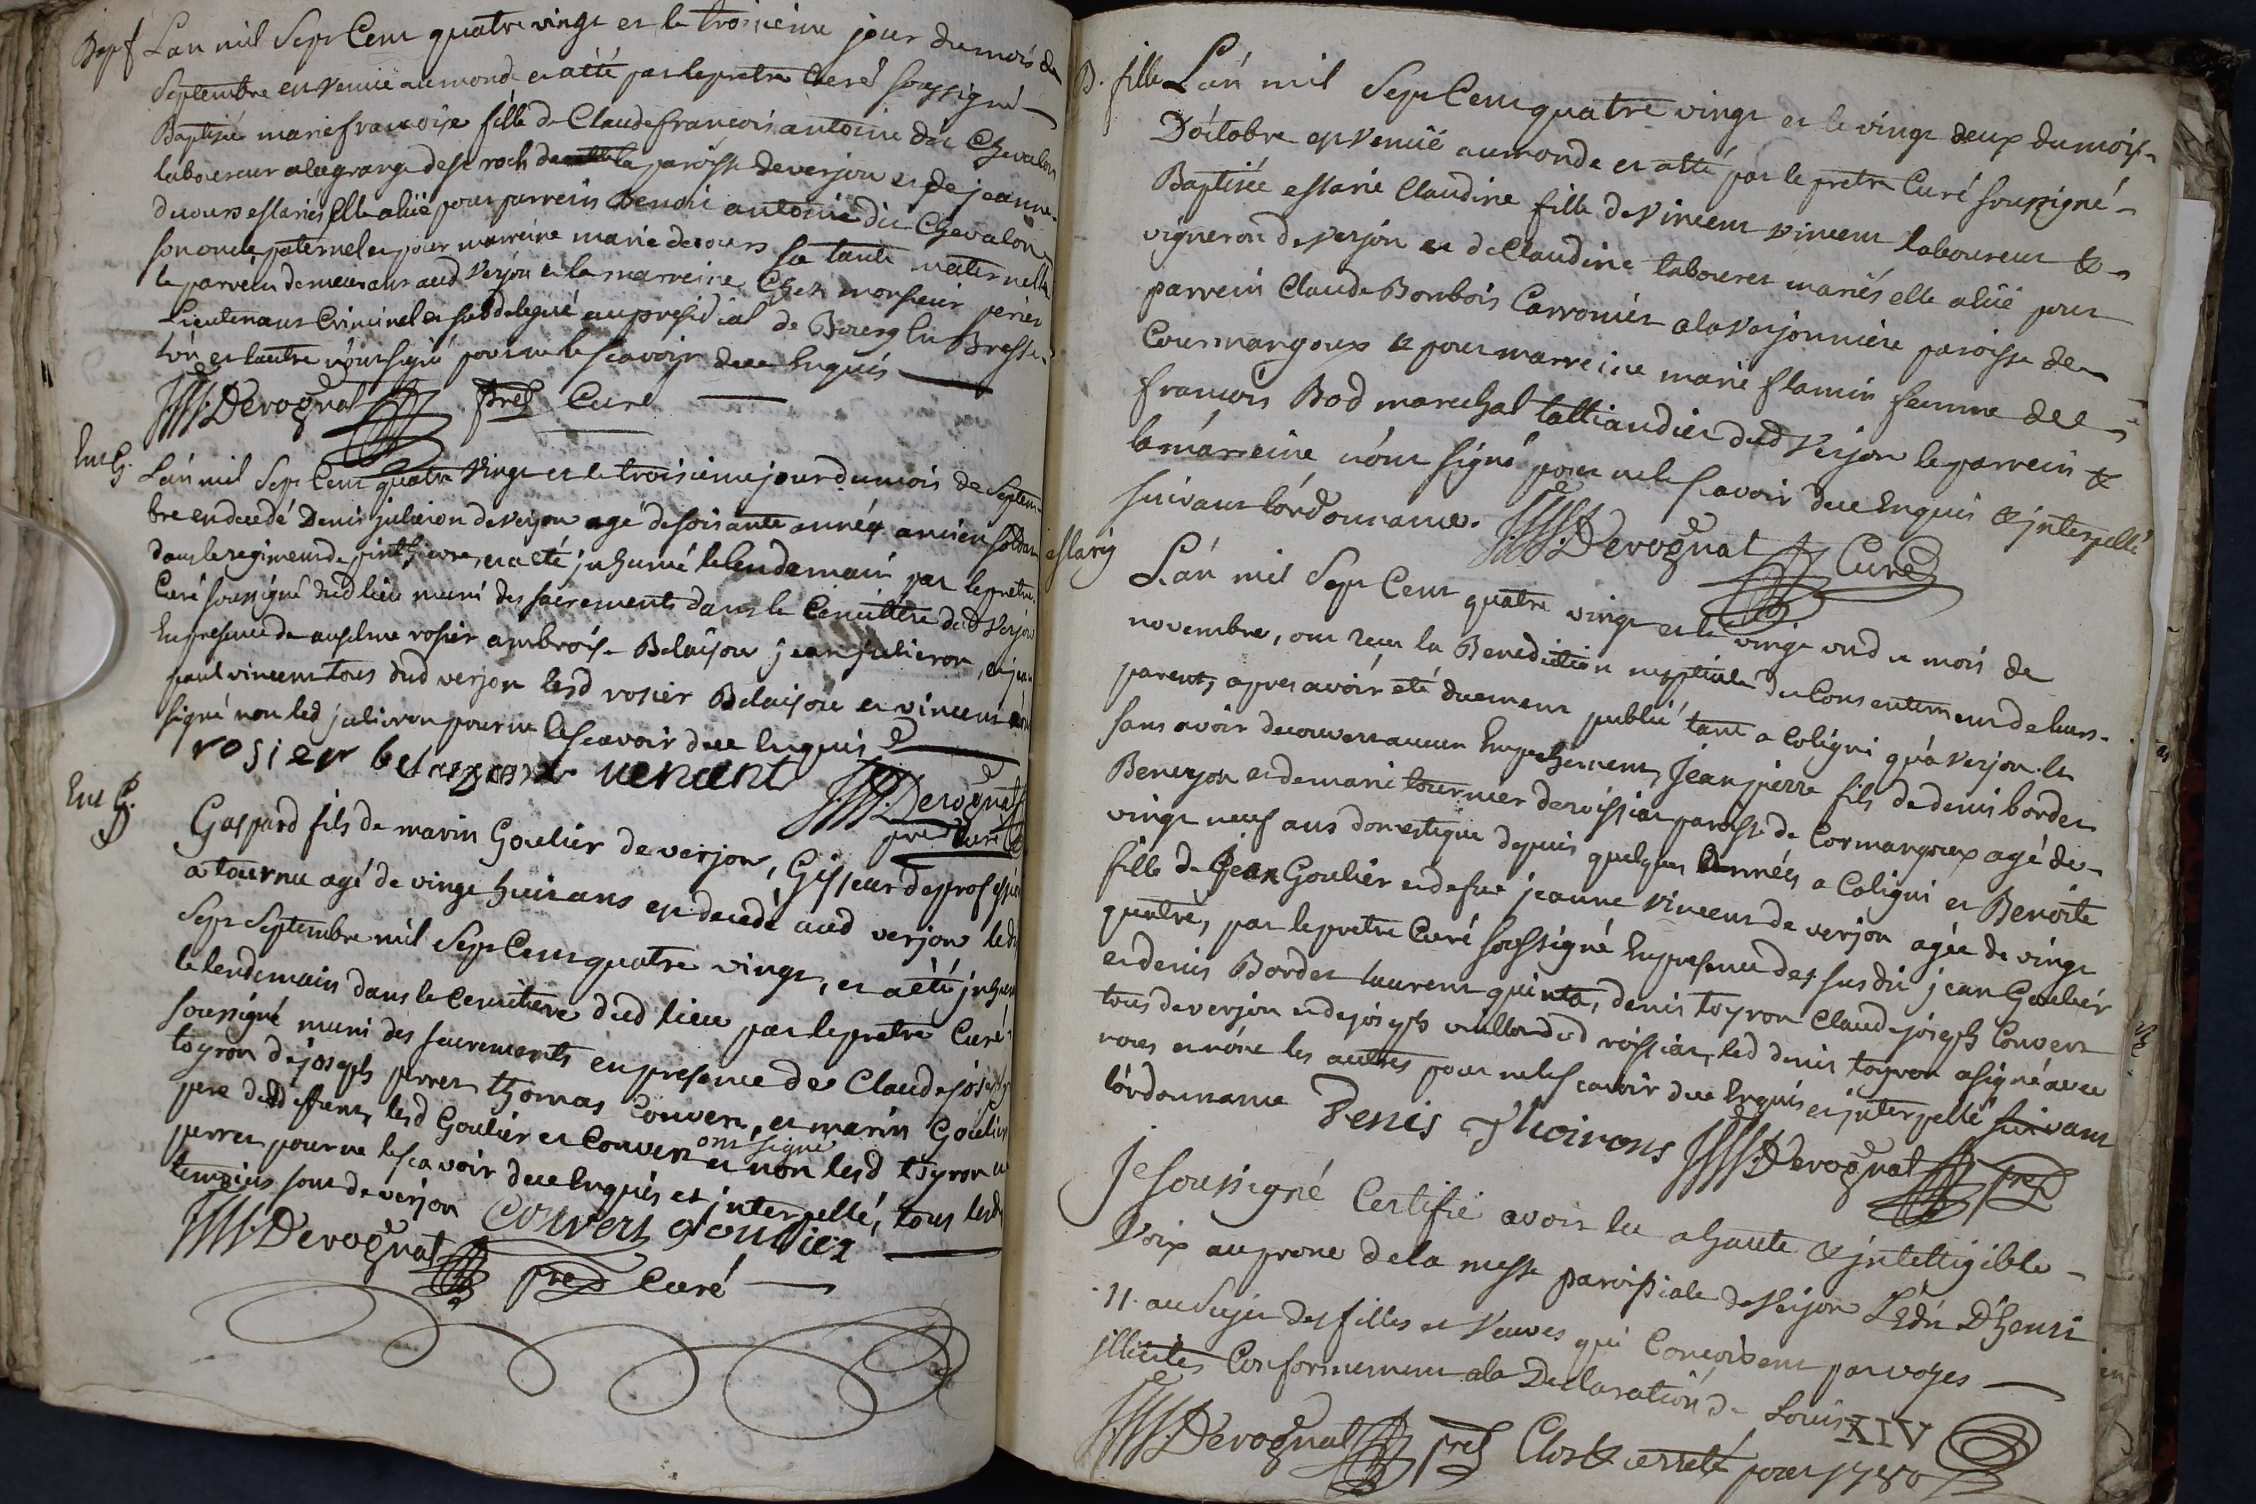 Bapt f Lan mil Sept Cent quatre vingt et le troisieme jour du mois de
Septembre est venuë au monde et a été par le pretre Curé soussigné
Baptisée marie françoise fille de Claude francois antoine dit Chevalon
laboureur a la grange de st roch de la paroisse de verjon et de jeanne
ducours mariés elle a üë pour parrein Benoit antoine dit Chevalon
son oncle paternel et pour marreine marie ducours sa tante maternelle
le parrein demeurant aud Verjon et la marreine Chez monsieur perier
Lieutenant Criminel et subdelegué au presidial de Bourg En Bresse
lún et lautre n'ont signé pour ne le scavoir deue Enquis
Derognat pret Curé
Ent G. Lán mil Sept Cent quatre Vingt et le troisieme jour du mois de Septem-
bre est decedé Denis julieron de verjon agé de soisante années ancien soldat
dans le regiment de pinthievre, et a eté jnhumé le lendemain par le pretre
Curé soussigné dud lieu muni des sacrements dans le Cemittere dud Verjon
En presence de anselme rosier ambrois Belaison jean julieron, et jean
paul vincent tous dud verjon lesd rosier Belaison et vincent ont
signé non led julieron pour ne le scavoir deue Enquis
rosier venient
Derognat
pre Curé
Ent G.
Gaspard fils de marin Goulier de verjon, Gisseur de profession
a tournu agé de vingt huit ans est decedé aud verjon le dix
Sept Septembre mil Sept Cent quatre vingt, et a été jnhumé
le lendemain dans le Cemittiere dud lieu par le pretre Curé
soussigné muni des sacrements en presence de Claude joseph
toyron de joseph perret thomas Convert, et marin Goulier
pere dud deffunt, lesd Goulier et Convert ont signé et non lesd toyron et
perret pour ne le scavoir deue Enquis et jnterpellé, tous lesd
temoins sont de verjon Convert goullier
Derognat pre Curé
B. fille Lán mil Sept Cent quatre vingt et le vingt deux du mois
D'octobre est venuë au monde et a eté par le pretre Curé soussigné
Baptisée Marie Claudine fille de vincent vincent laboureur &
vigneron de verjon et de Claudine laboureret mariés elle a üë pour
parrein Claude Bonbois Carronier a la Verjonniere paroisse de
Courmangoux & pour marreine marie flamin femme de
francois Bod marechal tattiandier dud Verjon le parrein &
la marreine n'ont signé pour ne le scavoir deue Enquis & jnterpellé
suivant lórdonnance. Derognat Curé
Mariag Lán mil Sept Cent quatre vingt et le vingt und du mois de
novembre, ont recu la Benediction nuptiale du Consentement de leurs
parents, apres avoir été duement publié tant a Coligni qu'a verjon et
sans avoir decouvert aucun Empechement, Jean pierre fils de denis bordet
Benerjon et de marie tournier de roissiat paroisse de Cormangoux agé de
vingt neuf ans domestique depuis quelques années a Coligni et Benoite
fille de jean Goulier et de fue jeanne Vincent de verjon agée de vingt
quatre, par le pretre Curé soussigné En presence des susdit jean Goulier
et denis Bordet laurent quinta, denis toyron Claude joseph Convert
tous de verjon et de joseph dud roissiat, led denis toyron a signé avec
nous et nóne les autres pour ne le scavoir deue Enquis et jnterpellé suivant
lórdonnance Denis Thoirons Derognat pre
Je soussigné Certifie avoir lu a haute & jntettigible
Voix au prone de la messe paroissiale de Verjon L'Edit D'henri
11. au Sujet des filles et Veuves qui Concoivent par voyes
jllicites Conformement a la Declaration de Louis XIV
Derognat pret Clos & arreté pour 1780